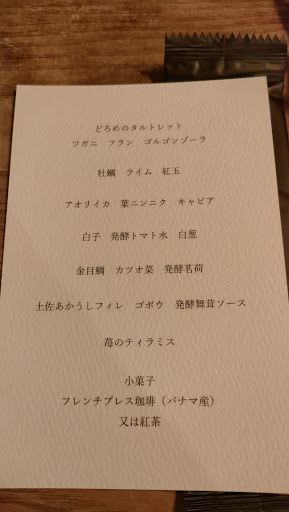 どろめのタルトレット
ツガニ　フラン　ゴルゴンゾーラ
牡蠣　ライム　紅玉
アオリイカ　葉ニンニク　キャビア
白子　発酵トマト水　白葱
金目鯛　カツオ菜　発酵茗荷
土佐あかうしフィレ　ゴボウ　発酵舞茸ソース
苺のティラミス
小菓子
フレンチプレス珈琲（パナマ産）
又は紅茶